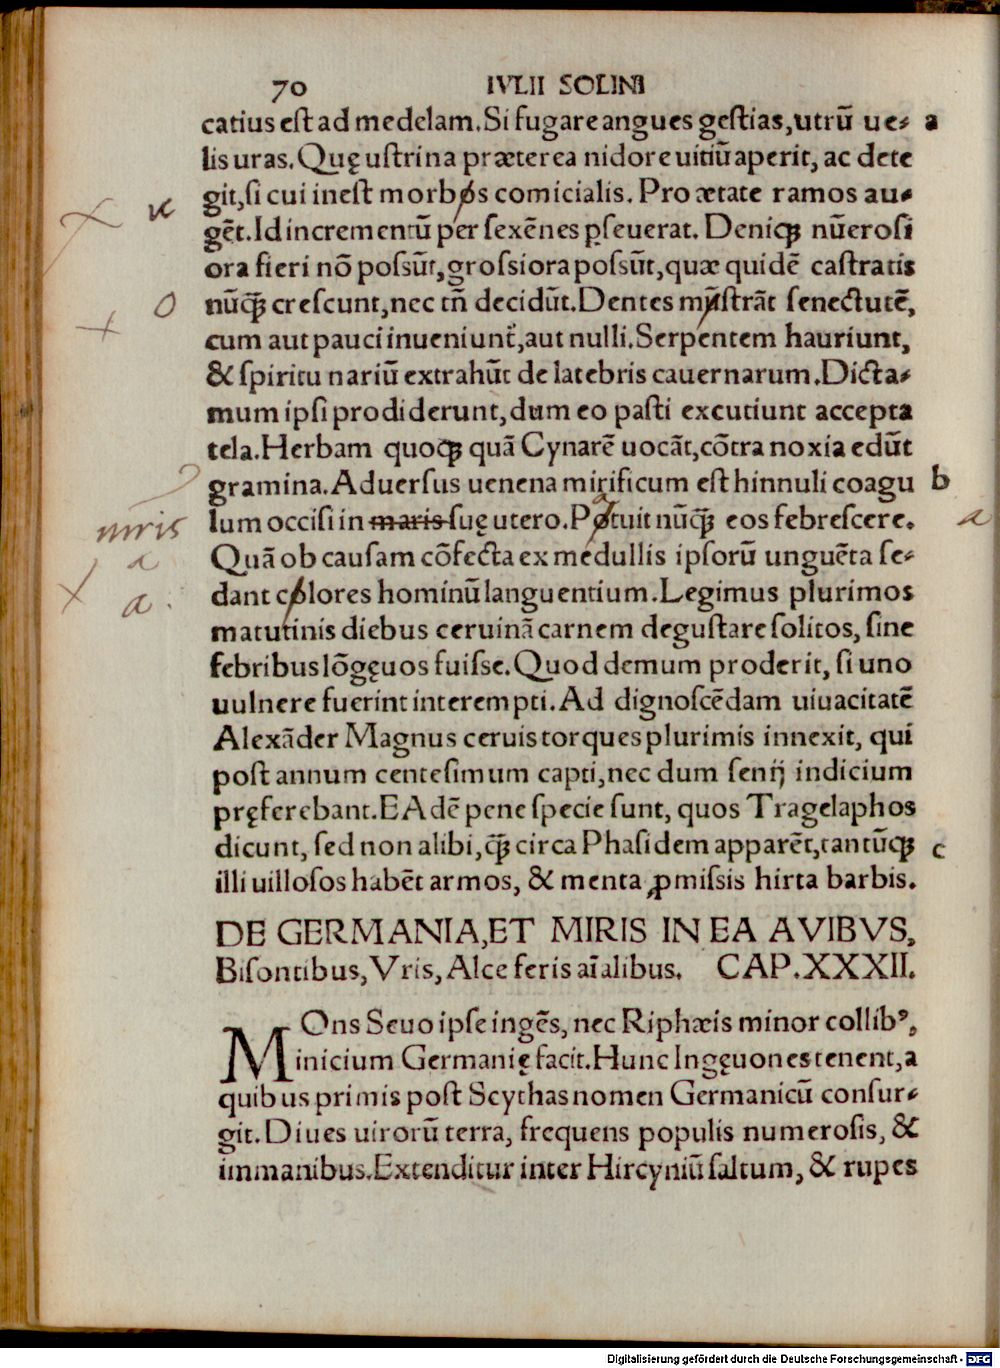 70 IVLII SOLINI
catius est ad medelam. Si fugare angues gestias, utrũ ue⸗ a
lis uras. Quę ustrina præterea nidore uitiũ aperit, ac dete
git, si cui inest morbos comicialis. Pro ætate ramos au⸗
gẽt. Id incrementũ per sexẽnes ꝑseuerat. Deniqꝫ nũerosi
ora fieri nõ possũt, grossiora possũt, quæ quidẽ castratis
nũꝗ̃ crescunt, nec tñ decidũt. Dentes mῆstrãt senectutẽ,
cum aut pauci inueniunt̃, aut nulli. Serpentem hauriunt,
& spiritu nariũ extrahũt de latebris cauernarum. Dicta⸗
mum ipsi prodiderunt, dum eo pasti excutiunt accepta
tela. Herbam quoqꝫ quã Cynarẽ uocãt, cõtra noxia edũt
gramina. Aduersus uenena mirificum est hinnuli coagu b
lum occisi in maris suę utero. Potuit nũꝗ̃ eos febrescere. a
miris
Quã ob causam cõfecta ex medullis ipsorũ unguẽta se⸗
a
dant colores hominũ languentium. Legimus plurimos
a
matutinis diebus ceruinã carnem degustare solitos, sine
febribus lõgęuos fuisse. Quod demum proderit, si uno
uulnere fuerint interempti. Ad dignoscẽdam uiuacitatẽ
Alexãder Magnus ceruis torques plurimis innexit, qui
post annum centesimum capti, nec dum senij indicium
pręferebant. EAdẽ pene specie sunt, quos Tragelaphos
dicunt, sed non alibi, ꝗ̃ circa Phasidem apparẽt, tantũqꝫ c
illi uillosos habẽt armos, & menta ꝓmissis hirta barbis.
DE GERMANIA, ET MIRIS IN EA AVIBVS,
Bisontibus, Vris, Alce feris aĩalibus. CAP. XXXII.
MOns Seuo ipse ingẽs, nec Riphæis minor collibꝰ,
inicium Germanię facit. Hunc Ingęuones tenent, a
quibus primis post Scythas nomen Germanicũ consur⸗
git. Diues uirorũ terra, frequens populis numerosis, &
immanibus. Extenditur inter Hircyniũ saltum, & rupes
Digitalisierung gefördert durch die Deutsche Forschungsgemeinschaft - DFG